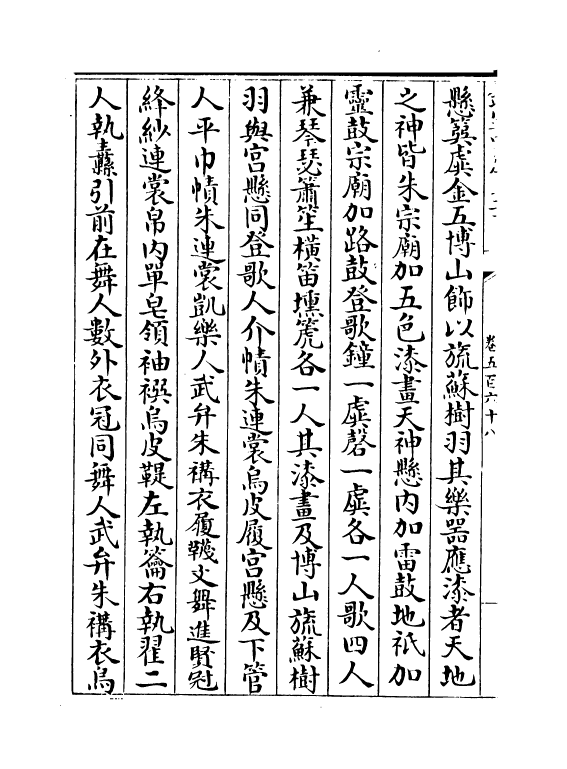 卷五百六十八
懸簨虡金五博山飾以旒蘇樹羽其樂器應漆者天地
之神皆朱宗廟加五色漆畫天神懸内加雷鼓地祇加
靈鼓宗廟加路鼓登歌鐘一虡磬一虡各一人歌四人
兼琴瑟簫笙横笛壎箎各一人其漆畫及博山旒蘇樹
羽與宮懸同登歌人介幘朱連裳烏皮履宮懸及下管
人平巾幘朱連裳凱樂人武弁朱褠衣履韈文舞進賢冠
絳紗連裳帛内單皂領袖襈烏皮鞮左執籥右執翟二
人執纛引前在舞人數外衣冠同舞人武弁朱褠衣烏